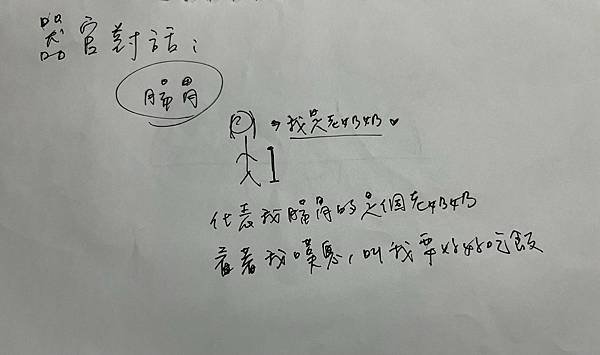 器官對話:
腸胃
→我是老奶奶
代表我腸胃的是個老奶奶
看著我嘆息,叫我要好好吃飯